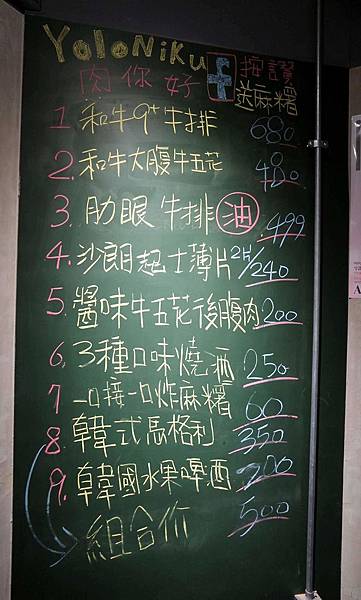 YoloNiku
肉你好 f 按讚
送麻糬
1. 和牛9+牛排 680
2. 和牛大腹牛五花 480
3. 肋眼牛排 油 499
4. 沙朗起士薄片 2片/240
5. 醬味牛五花後腹肉 200
6. 3種口味燒酒 250
7 一口接一口炸麻糬 60
8. 韓式馬格利 350
9. 韓國水果啤酒 200
組合价 500